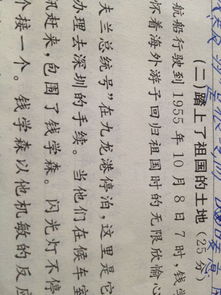 (二)踏上了祖国的土地(25分)
航船行驶到1955年10月8日7时,钱学
怀着海外游子回归祖国时的无限欣愉心
夫兰总统号”在九龙港停泊,这里是它
办理去深圳的手续。当他们在候车室
讯赶来,包围了钱学森。闪光灯不停
个挨一个。钱学森以他机敏的反应